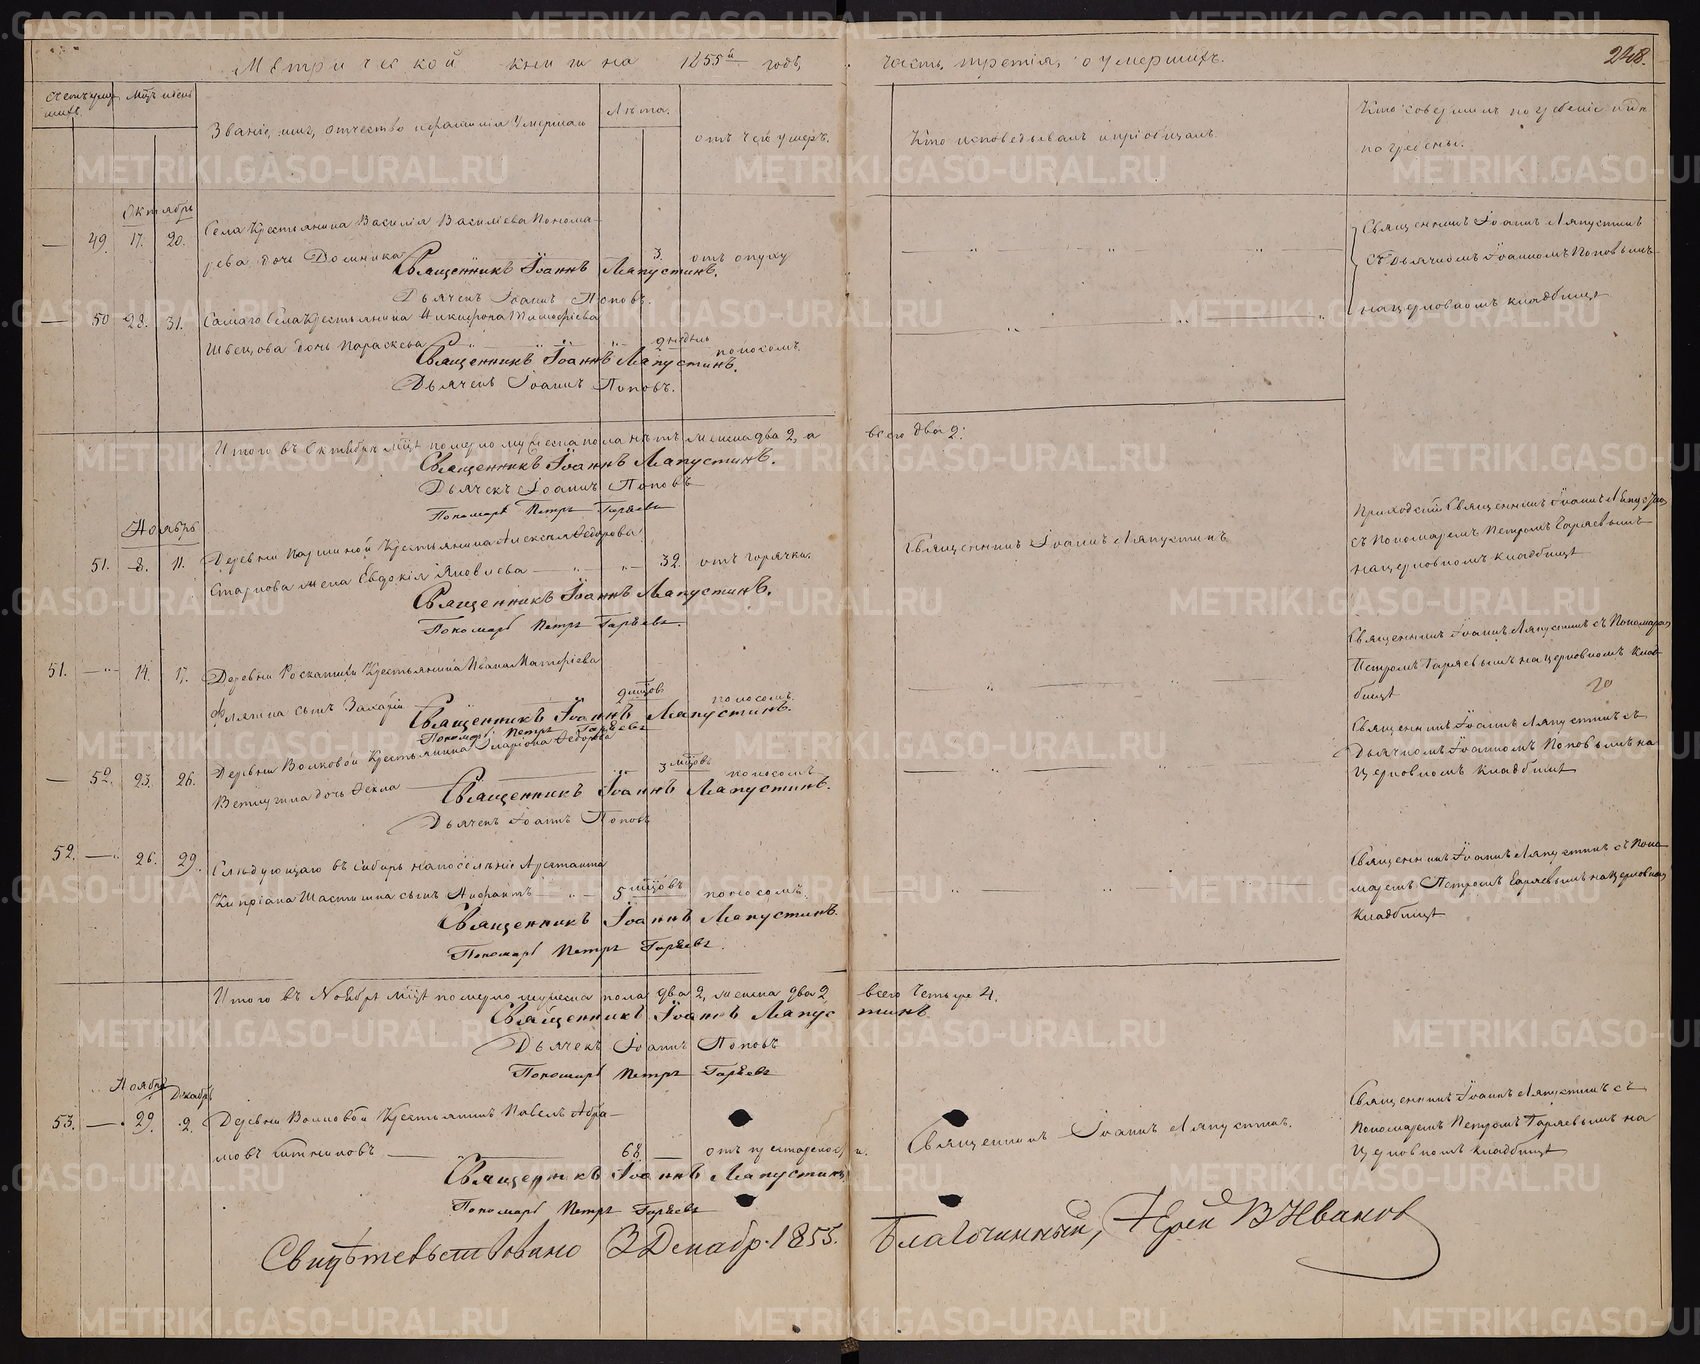 Метрической книги на 1855й годъ,
часть третія, о умершихъ.
248.
Счетъ умершихъ.
Мѣцъ и день
Званіе, имя, отчество и фамилія Умершаго
Лѣта.
отъ чего умеръ.
Кто исповѣдывалъ и пріобщалъ.
Кто совершилъ погребеніе и гдѣ
погребены.
Октябрь
49. 17. 20. Села Крестьянина Василія Васильева Понома-
рева дочь Домника 3. отъ опуху
Священникъ Іоаннъ Лапустинъ.
Дьячекъ Іоаннъ Поповъ.
Священникъ Іоаннъ Ляпустинъ
съ Дьячкомъ Іоанномъ Поповымъ
на церковномъ кладбищѣ
50 28. 31. Самаго Села Крестьянина Никифора Тимофѣева
Швецова дочь Параскева 2 недѣль поносомъ.
Священникъ Іоаннъ Лапустинъ.
Дьячекъ Іоаннъ Поповъ.
Итого въ Октябрѣ мѣцѣ померло мужеска пола нѣтъ женска два 2, а всего два 2:
Священникъ Іоаннъ Лапустинъ.
Дьячекъ Іоаннъ Поповъ
Пономарь Петръ Гаряевъ
Ноябрь
51. 8. 11. Деревни Крестьянина Алексѣя Ѳедорова
жена Евдокія Яковлева 32. отъ горячки.
Священникъ Іоаннъ Лапустинъ.
Пономарь Петръ Гаряевъ.
Священникъ Іоаннъ Ляпустинъ
Приходскій Священникъ Іоаннъ Ляпустинъ
съ Пономаремъ Петромъ Гаряевымъ
на церковномъ кладбищѣ
51. 14. 17. Деревни Крестьянина Ивана Матфѣева
сынъ Захарій 9 мѣцовъ поносомъ.
Священникъ Іоаннъ Лапустинъ.
Пономарь Петръ Гаряевъ
Священникъ Іоаннъ Ляпустинъ съ Пономаремъ
Петромъ Гаряевымъ на церковномъ клад-
бищѣ
52. 23. 26. Деревни Волковой Крестьянина Иларіона Ѳедорова
дочь Ѳекла 3 мѣцовъ поносомъ
Священникъ Іоаннъ Лапустинъ.
Дьячекъ Іоаннъ Поповъ
Священникъ Іоаннъ Ляпустинъ съ
Дьячкомъ Іоанномъ Поповымъ на
Церковномъ кладбищѣ
52. 26. 29. Слѣдующаго въ Сибирь на поселѣніе Арестанта
Кипріана сынъ 5 мѣцовъ поносомъ.
Священникъ Іоаннъ Лапустинъ.
Пономарь Петръ Гаряевъ.
Священникъ Іоаннъ Ляпустинъ съ Поно-
маремъ Петромъ Гаряевымъ на церковномъ
Кладбищѣ
Итого въ Ноябрѣ мѣцѣ померло мужеска пола два 2, женска два 2 всего четыре 4.
Священникъ Іоаннъ Лапустинъ
Дьячекъ Іоаннъ Поповъ
Пономарь Петръ Гаряевъ
Ноября Декабрь
53. 29. 2. Деревни Волковой Крестьянинъ Павелъ Абра-
мовъ 68. отъ престарелости.
Священникъ Іоаннъ Лапустинъ
Пономарь Петръ Гаряевъ
Священникъ Іоаннъ Ляпустинъ.
Священникъ Іоаннъ Ляпустинъ съ
Пономаремъ Петромъ Гаряевымъ на
Церковномъ кладбищѣ
Свидѣтельствовано 3 Декабр. 1855. Благочинный, Іерей В Ивановъ
METRIKI.GASO-URAL.RU